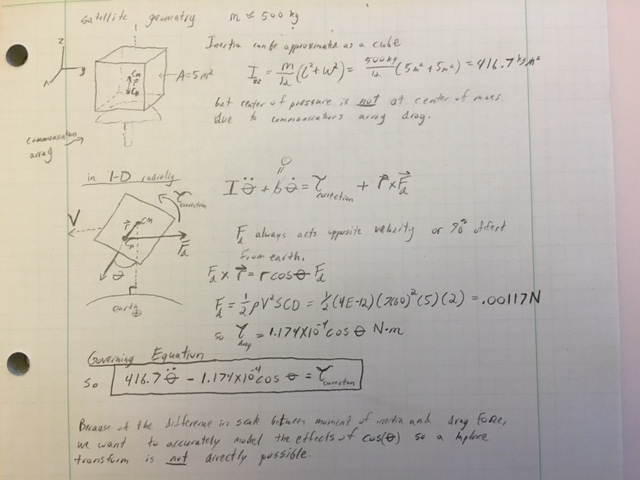 Satellite geometry m ≈ 500 kg
Inertia can be approximated as a cube
I_zz = m/12 (l² + w²) = 500kg/12 (5m² + 5m²) = 416.7 kg m²
but center of pressure is not at center of mass
due to communications array drag.
z
y
x
Cm
r
Cp
A=5m²
communications
array
in 1-D radially
I θ̈ + b θ̇ = τ_correction + r⃗ x F⃗_d
0
V
r⃗
CM
τ_correction
F⃗_d
θ
earth ⊕
F_d always acts opposite velocity or 90° offset
from earth.
F_d x r⃗ = r cos θ F_d
F_d = 1/2 ρV²SCD = 1/2 (4E-12)(7660)²(5)(2) = .00117N
so τ_drag = 1.174x10⁻⁴ cos θ N·m
Governing Equation
so 416.7 θ̈ - 1.174x10⁻⁴ cos θ = τ_correction
Because of the difference in scale between moment of inertia and drag force,
we want to accurately model the effects of cos(θ) so a laplace
transform is not directly possible.